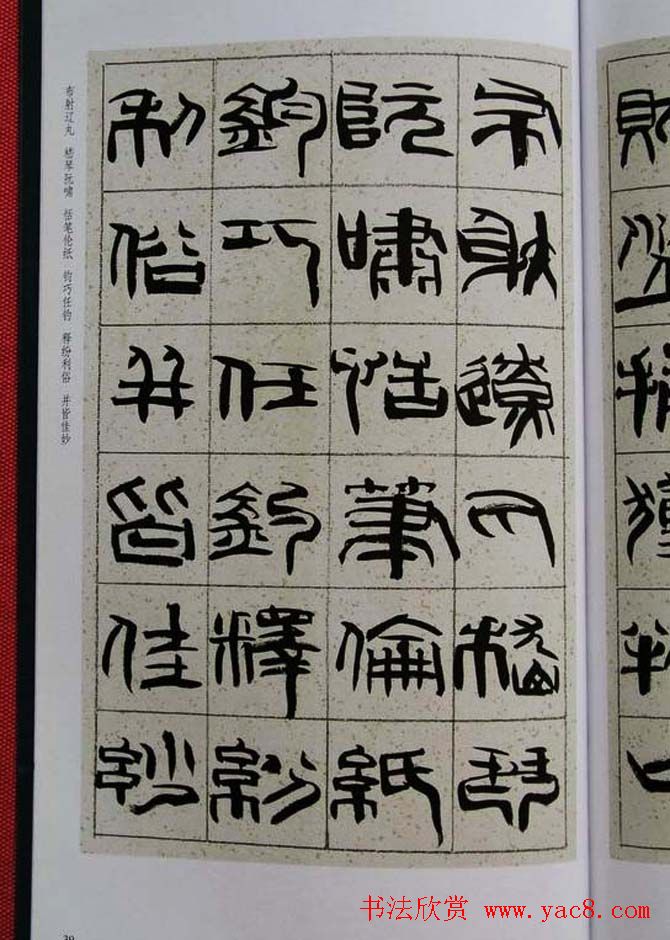 布射遼丸嵇琴
阮嘯恬筆倫紙
鈞巧任釣釋紛
利俗并皆佳妙
布射辽丸 嵇琴阮啸 恬笔伦纸 钧巧任钓 释纷利俗 并皆佳妙
书法欣赏 www.yac8.com